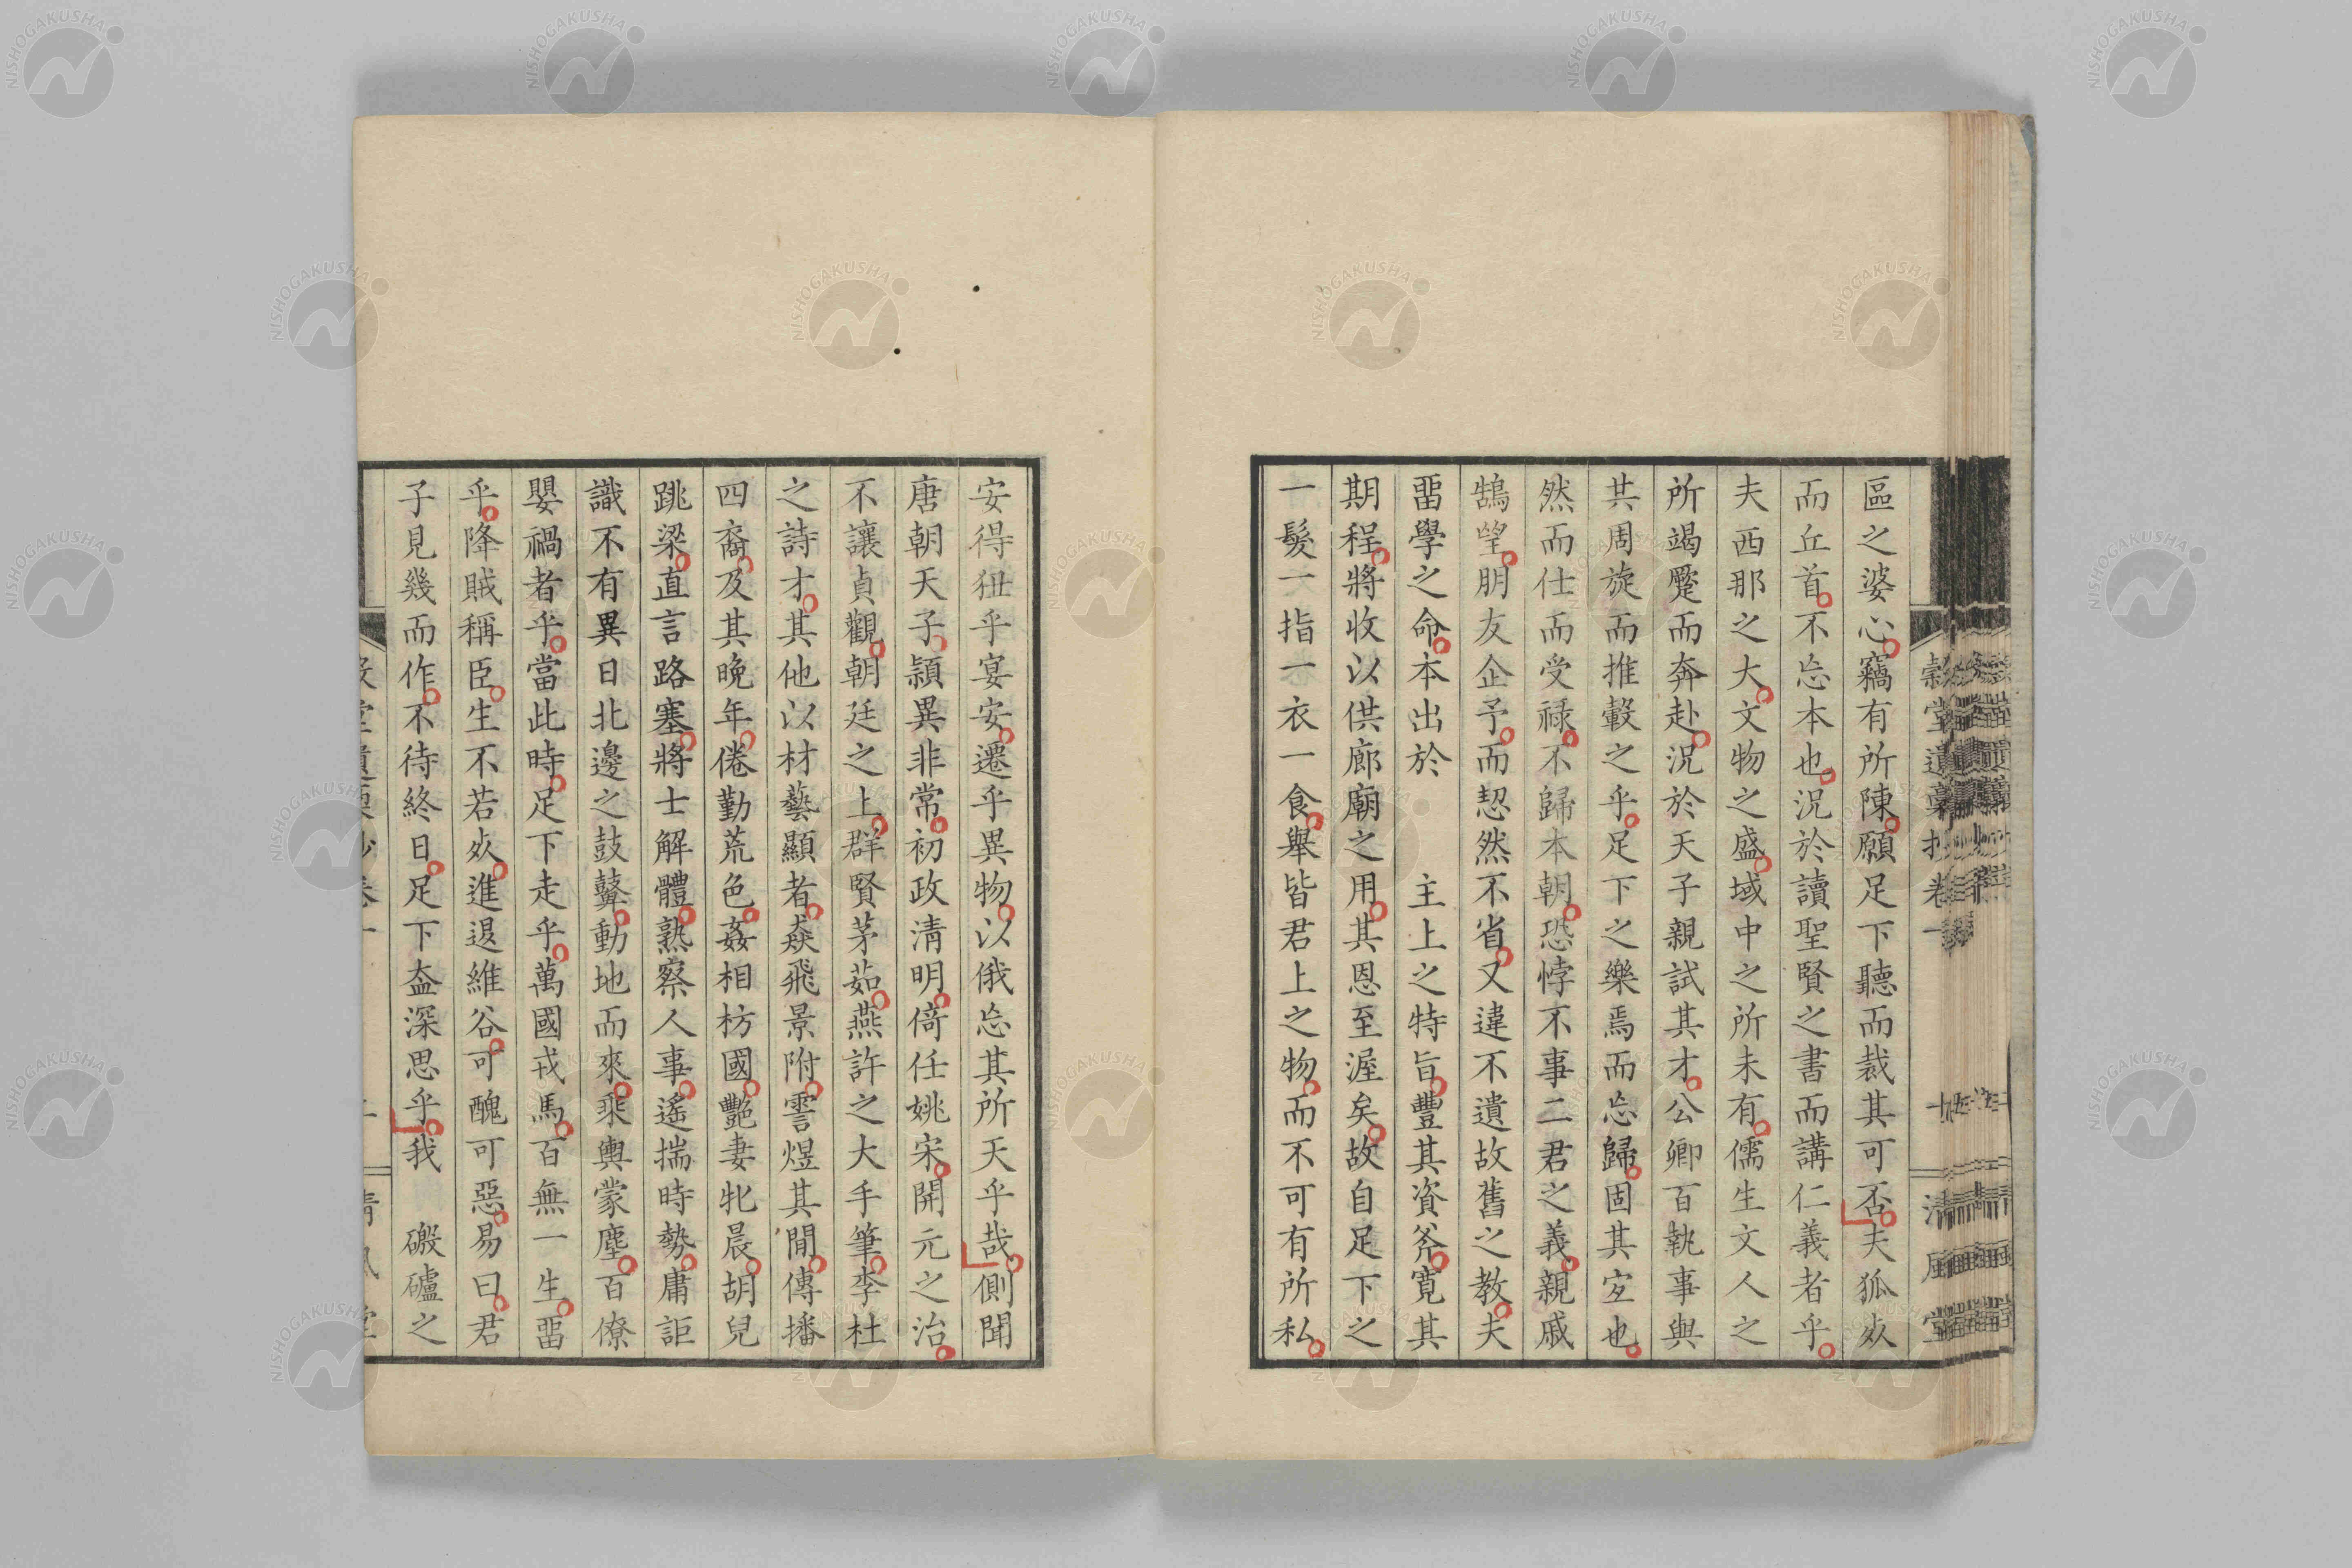 區之婆心竊有所陳願足下聽而裁其可否夫狐㱙
而丘首不忘本也況於讀聖賢之書而講仁義者乎
夫西那之大文物之盛域中之所未有儒生文人之
所竭蹷而奔赴況於天子親試其才公卿百執事與
其周旋而推轂之乎足下之樂焉而忘歸固其宐也
然而仕而受祿不歸本朝恐悖不事二君之義親戚
鵠望朋友企予而恝然不省又違不遺故舊之教夫
畱學之命本出於　主上之特旨豐其資斧寬其
期程將收以供廊廟之用其恩至渥矣故自足下之
一髮一指一衣一食舉皆君上之物而不可有所私
安得狃乎宴安遷乎異物以俄忘其所天乎哉側聞
唐朝天子頴異非常初政清明倚任姚宋開元之治
不讓貞觀朝廷之上群賢茅茹燕許之大手筆李杜
之詩才其他以材藝顯者猋飛景附霅煜其閒傳播
四裔及其晚年倦勤荒色姦相枋國豔妻牝晨胡兒
跳梁直言路塞將士解體熟察人事遙揣時勢庸詎
識不有異日北邊之鼓鼙動地而來乘輿蒙塵百僚
嬰禍者乎當此時足下走乎萬國戎馬百無一生畱
乎降賊稱臣生不若㱙進退維谷可醜可惡易曰君
子見幾而作不待終日足下盍深思乎我　磤礰之
穀堂遺稾抄卷一
清風堂
NISHOGAKUSHA